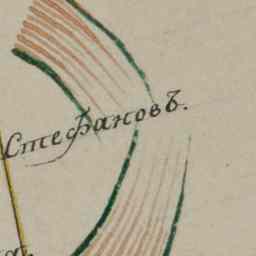 Стефановъ.